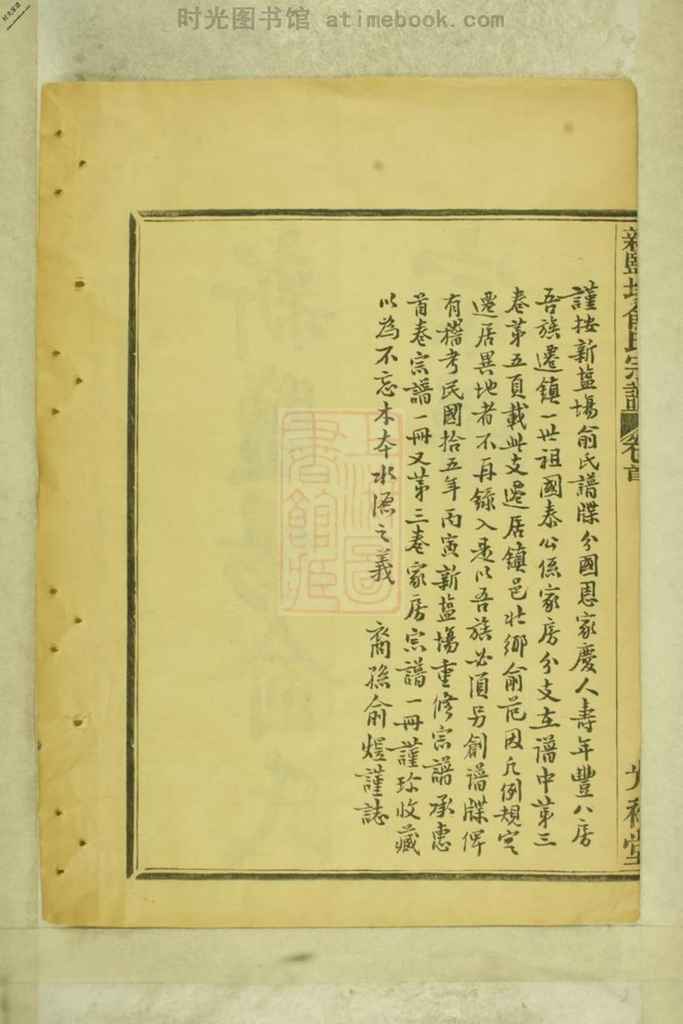 时光图书馆 atimebook.com
新鹽場俞氏宗譜 卷首
謹按新塩場俞氏譜牒分國恩家慶人壽年豐八房
吾族遷鎮一世祖國泰公係家房分支在譜中第三
卷第五頁載此支遷居鎮邑壯鄉俞范因凡例規定
遷居異地者不再錄入是以吾族必須另創譜牒俾
有稽考民國拾五年丙寅新塩場重修宗譜承惠
首卷宗譜一冊又第三卷家房宗譜一冊謹珍收藏
以為不忘木本水源之義
裔孫俞煜謹誌